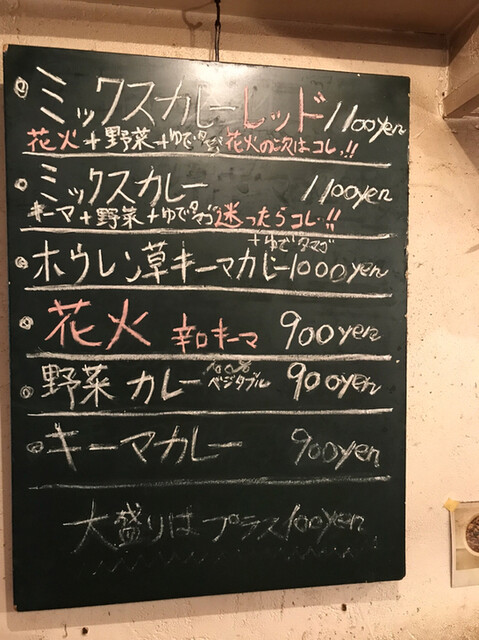 ◎ミックスカレーレッド 1100yen
花火+野菜+ゆでタマゴ 花火の次はコレ!!
◎ミックスカレー 1100yen
キーマ+野菜+ゆでタマゴ 迷ったらコレ!!
+ゆでタマゴ
◎ホウレン草キーマカレー1000yen
◎花火 辛口キーマ 900yen
◎野菜カレー 100%ベジタブル 900yen
◎キーマカレー 900yen
大盛りはプラス100yen